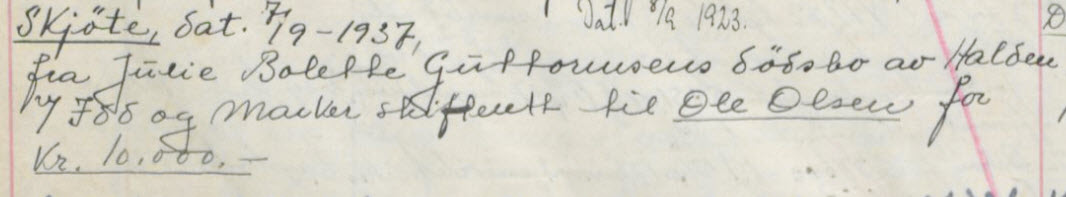 Dat. 8/9 1923.
Skjöte, dat. 7/9-1937,
fra Julie Bolette Guttormsens dödsbo av Halden
v/ Idd og Marker skifterett til Ole Olsen for
Kr. 10.000.-